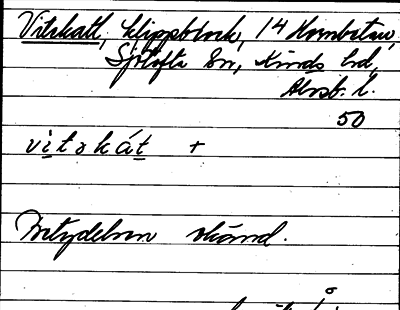 Vitskatt, klippblock, 14 Hornbetan,
Sjötofta sn, Kinds hd,
Älvsb. l.
50
vitskát +
Betydelsen okänd.